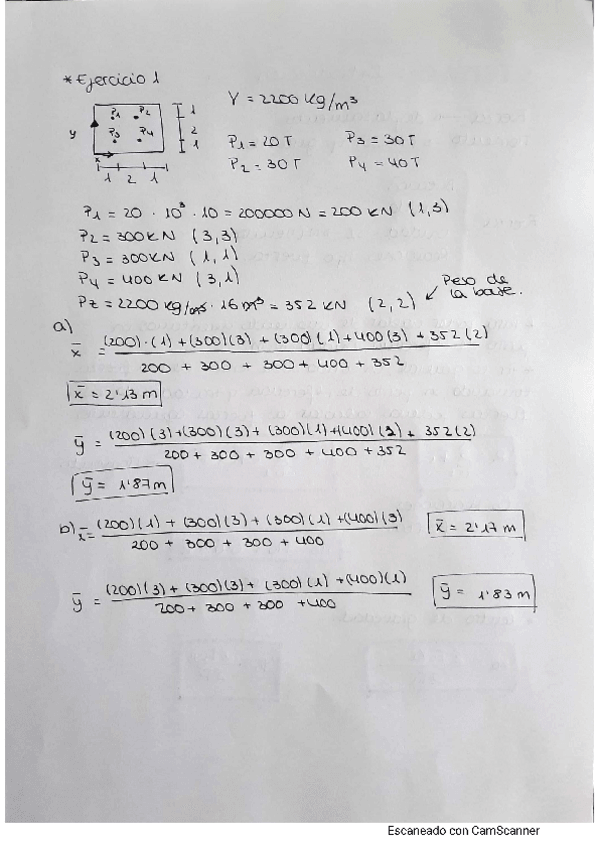 * Ejercicio 1
γ = 2200 Kg/m³
P1 P2 1
y P3 P4 2
1
x
1 2 1
P1 = 20 T P3 = 30 T
P2 = 30 T P4 = 40 T
P1 = 20 · 10³ · 10 = 200000 N = 200 KN (1,3)
P2 = 300 KN (3,3)
P3 = 300 KN (1,1)
P4 = 400 KN (3,1)
Pz = 2200 kg/m³ · 16 m³ = 352 KN (2,2) ↙ Peso de la base.
a)
x̄ = (200)·(1) + (300)(3) + (300)(1) + 400(3) + 352(2)
200 + 300 + 300 + 400 + 352
x̄ = 2'13 m
ȳ = (200)(3) + (300)(3) + (300)(1) + (400)(1) + 352(2)
200 + 300 + 300 + 400 + 352
ȳ = 1'87 m
b) x̄ = (200)(1) + (300)(3) + (300)(1) + (400)(3) x̄ = 2'17 m
200 + 300 + 300 + 400
ȳ = (200)(3) + (300)(3) + (300)(1) + (400)(1) ȳ = 1'83 m
200 + 300 + 300 + 400
Escaneado con CamScanner